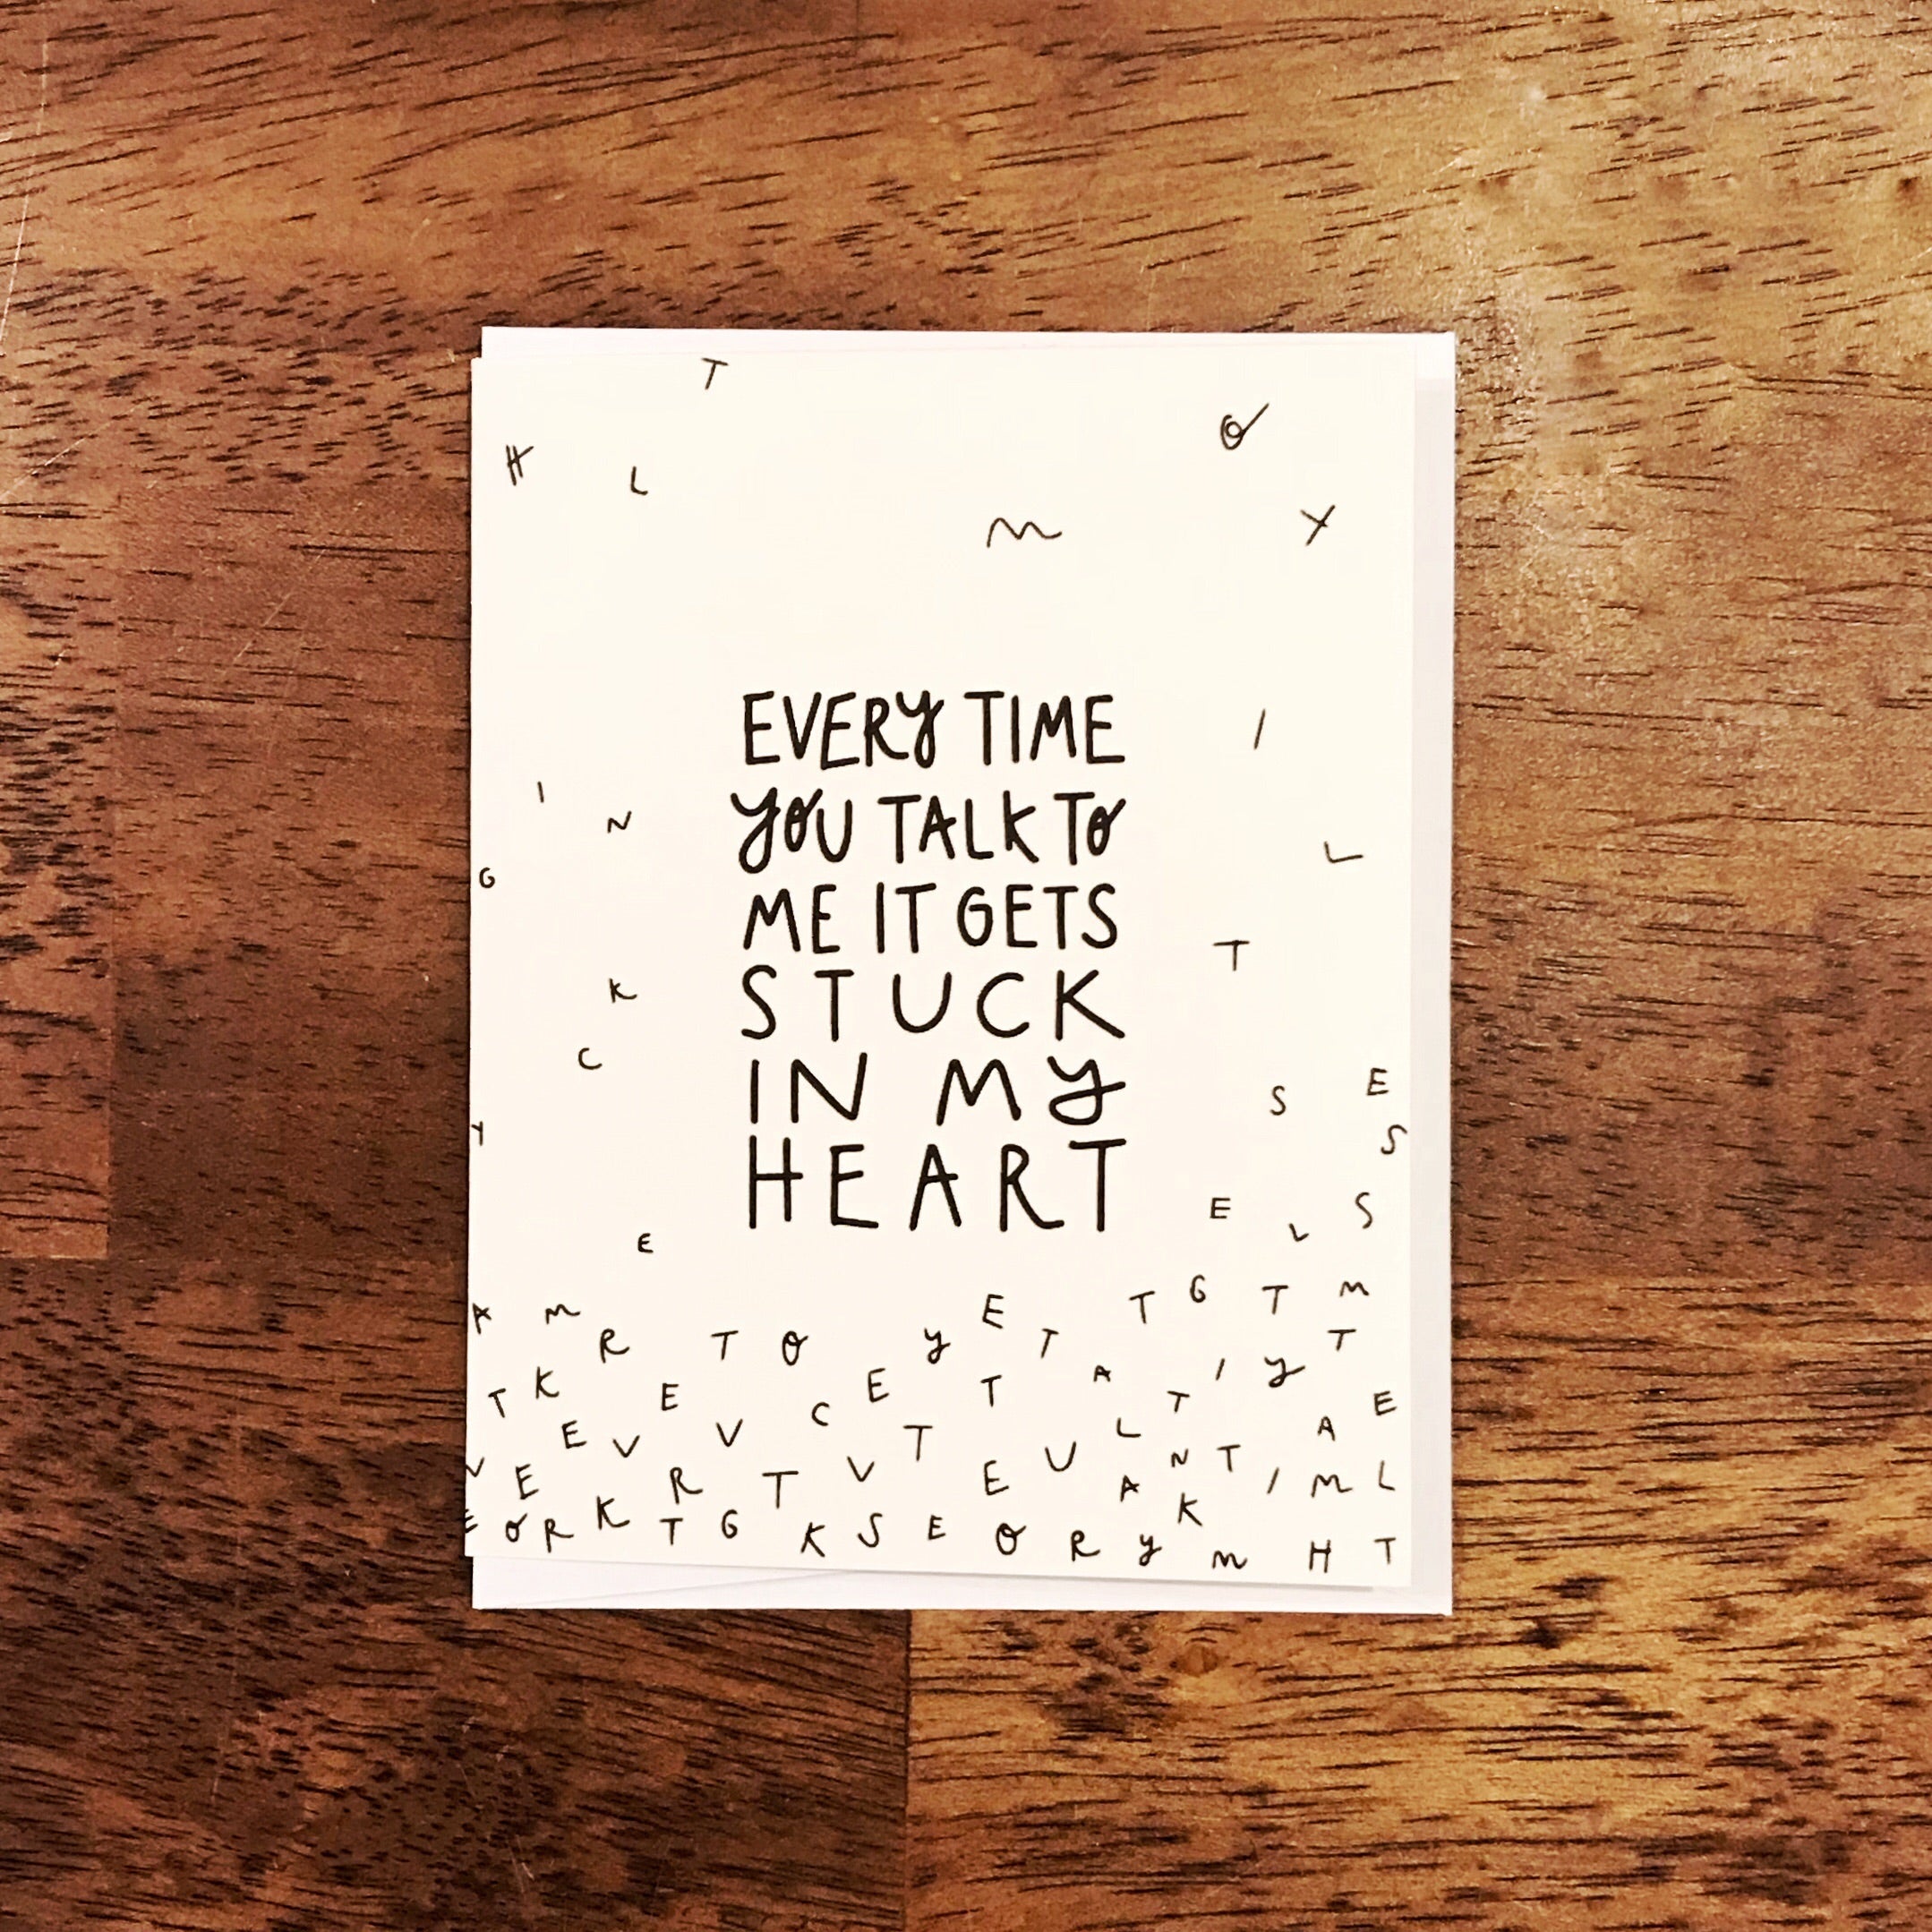 T
O
H L
M Y
EVERY TIME
I
I
YOU TALK TO
N
L
G
ME IT GETS
T
K
STUCK
C
IN MY
S E
Y
S
HEART
E L S
E
A M E T G T M
R T O Y T T
T K E E T A I Y
E V V C T L T A E
V E R T V E U A N T I M L
E O R K T G K S E O R Y K
M H T